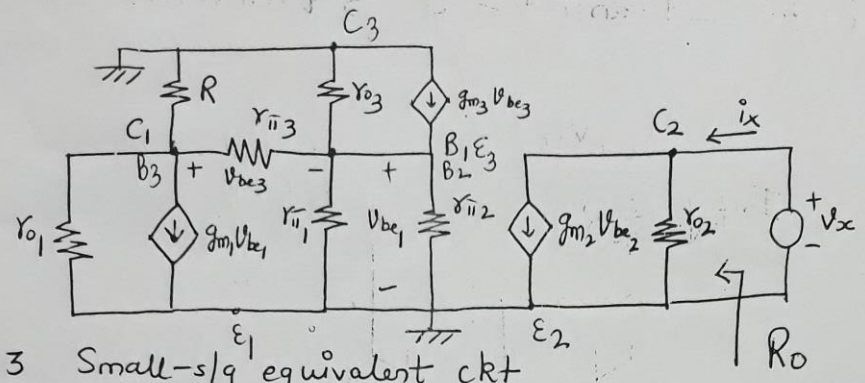 C3
R
rπ3
ro3
gm3 vbe3
C1
B3
+
vbe3
-
+
B1 ε3
B2
C2
ix
ro1
gm1 vbe1
rπ1
vbe1
rπ2
gm2 vbe2
ro2
+
vx
-
-
ε1
ε2
Ro
3 Small-sig equivalent ckt